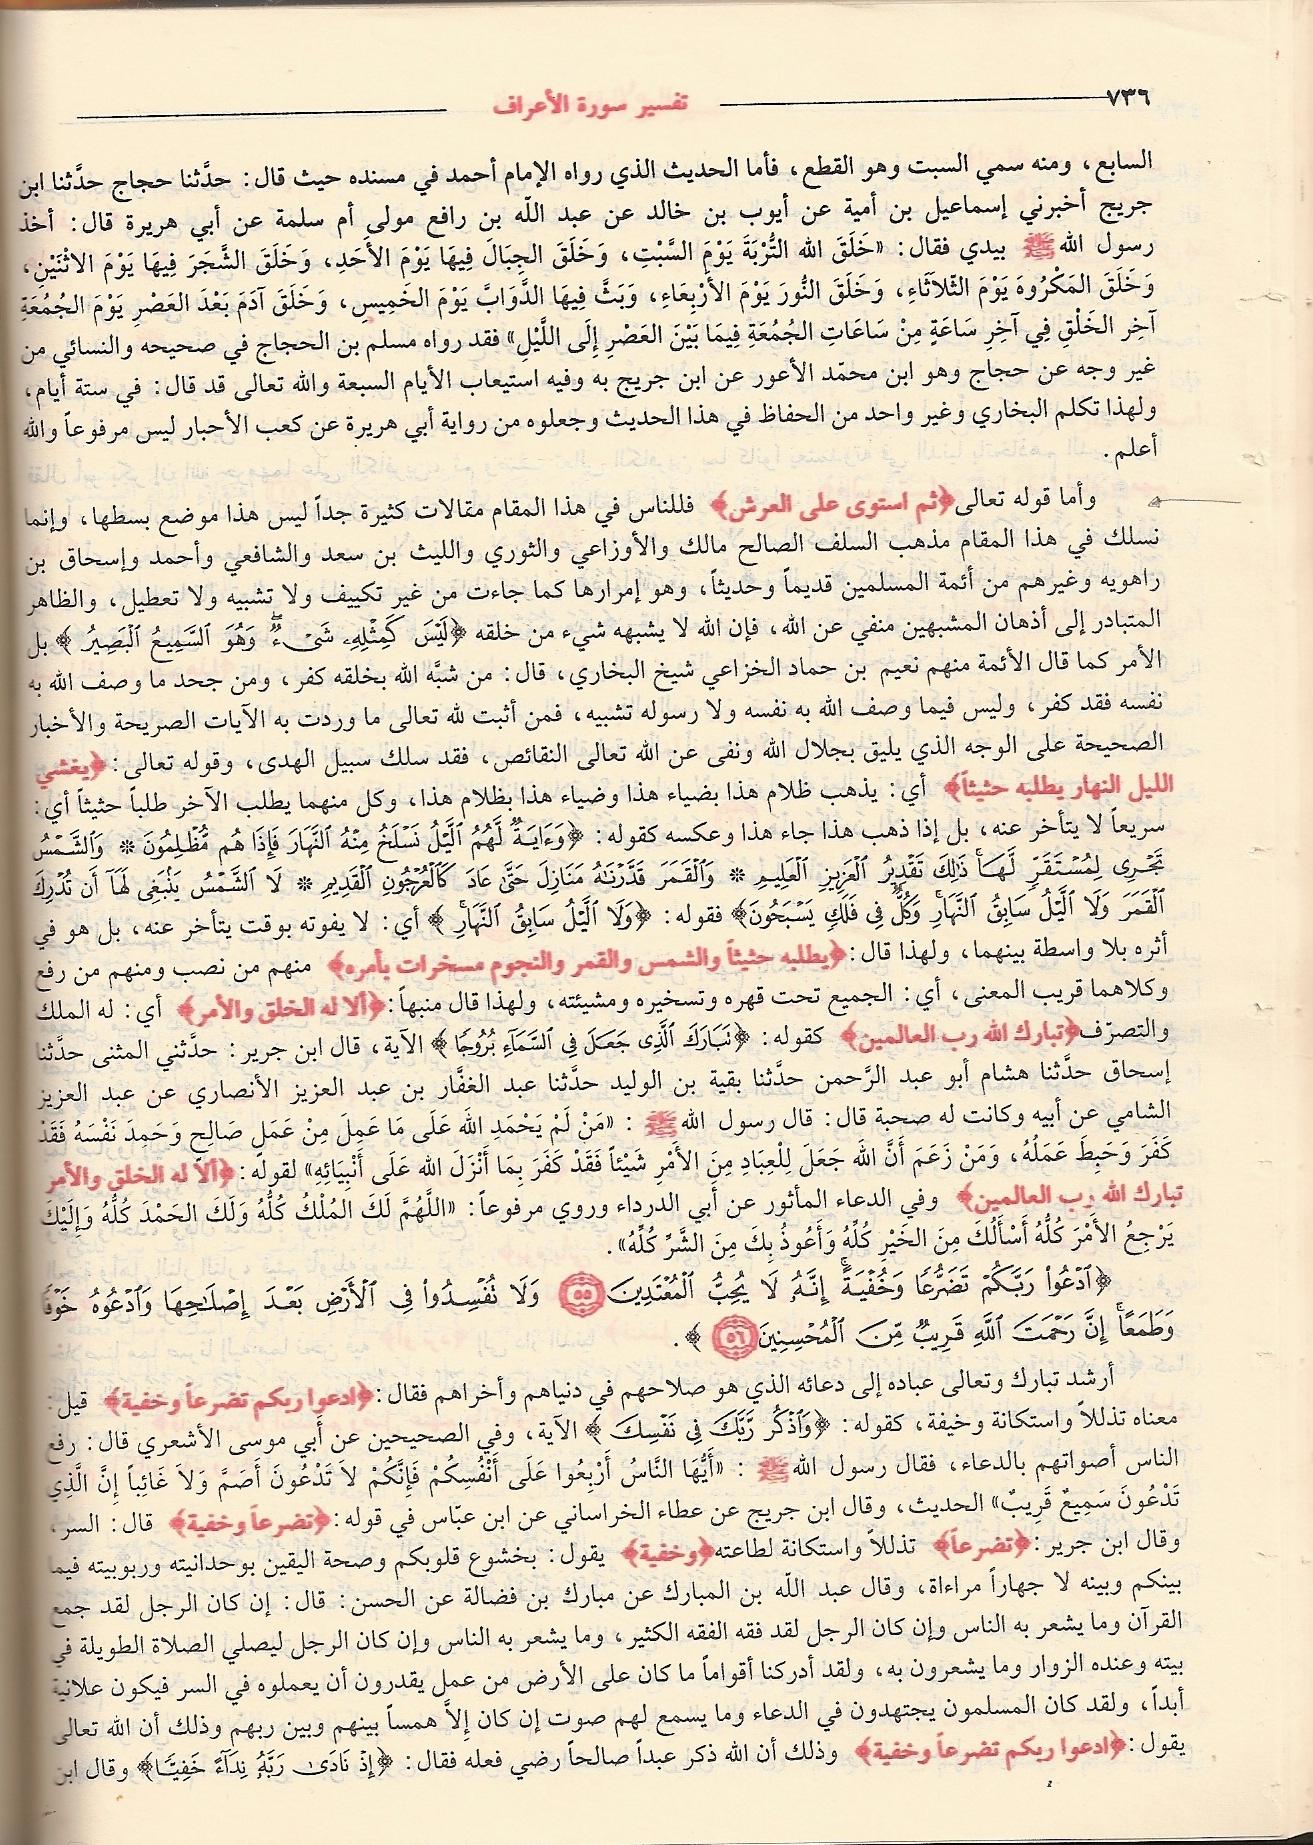 ٧٣٦
تفسير سورة الأعراف
السابع، ومنه سمي السبت وهو القطع، فأما الحديث الذي رواه الإمام أحمد في مسنده حيث قال: حدَّثنا حجاج حدَّثنا ابن
جريج أخبرني إسماعيل بن أمية عن أيوب بن خالد عن عبد اللّه بن رافع مولى أم سلمة عن أبي هريرة قال: أخذ
رسول الله ﷺ بيدي فقال: «خَلَقَ الله التُّرْبَةَ يَوْمَ السَّبْتِ، وَخَلَقَ الجِبَالَ فِيهَا يَوْمَ الأَحَدِ، وَخَلَقَ الشَّجَرَ فِيهَا يَوْمَ الاثْنَيْنِ،
وَخَلَقَ المَكْرُوهَ يَوْمَ الثّلاثَاءِ، وَخَلَقَ النُّورَ يَوْمَ الأَرْبِعَاءِ، وَبَثَّ فِيهَا الدَّوَابَّ يَوْمَ الخَمِيسِ، وَخَلَقَ آدَمَ بَعْدَ العَصْرِ يَوْمَ الجُمُعَةِ
آخِر الخَلْقِ فِي آخِرِ سَاعَةٍ مِنْ سَاعَاتِ الجُمُعَةِ فِيمَا بَيْنَ العَصْرِ إِلَى اللَّيْلِ» فقد رواه مسلم بن الحجاج في صحيحه والنسائي من
غير وجه عن حجاج وهو ابن محمّد الأعور عن ابن جريج به وفيه استيعاب الأيام السبعة والله تعالى قد قال: في ستة أيام،
ولهذا تكلم البخاري وغير واحد من الحفاظ في هذا الحديث وجعلوه من رواية أبي هريرة عن كعب الأحبار ليس مرفوعاً والله
أعلم.
وأما قوله تعالى ﴿ثم استوى على العرش﴾ فللناس في هذا المقام مقالات كثيرة جداً ليس هذا موضع بسطها، وإنما
نسلك في هذا المقام مذهب السلف الصالح مالك والأوزاعي والثوري والليث بن سعد والشافعي وأحمد وإسحاق بن
راهويه وغيرهم من أئمة المسلمين قديماً وحديثاً، وهو إمرارها كما جاءت من غير تكييف ولا تشبيه ولا تعطيل، والظاهر
المتبادر إلى أذهان المشبهين منفي عن الله، فإن الله لا يشبهه شيء من خلقه ﴿لَيْسَ كَمِثْلِهِۦ شَىْءٌ ۖ وَهُوَ ٱلسَّمِيعُ ٱلْبَصِيرُ﴾ بل
الأمر كما قال الأئمة منهم نعيم بن حماد الخزاعي شيخ البخاري، قال: من شبَّه الله بخلقه كفر، ومن جحد ما وصف الله به
نفسه فقد كفر، وليس فيما وصف الله به نفسه ولا رسوله تشبيه، فمن أثبت لله تعالى ما وردت به الآيات الصريحة والأخبار
الصحيحة على الوجه الذي يليق بجلال الله ونفى عن الله تعالى النقائص، فقد سلك سبيل الهدى، وقوله تعالى: ﴿يغشي
الليل النهار يطلبه حثيثاً﴾ أي: يذهب ظلام هذا بضياء هذا وضياء هذا بظلام هذا، وكل منهما يطلب الآخر طلباً حثيثاً أي:
سريعاً لا يتأخر عنه، بل إذا ذهب هذا جاء هذا وعكسه كقوله: ﴿وَءَايَةٌ لَّهُمُ ٱلَّيْلُ نَسْلَخُ مِنْهُ ٱلنَّهَارَ فَإِذَا هُم مُّظْلِمُونَ * وَٱلشَّمْسُ
تَجْرِى لِمُسْتَقَرٍّ لَّهَا ۚ ذَٰلِكَ تَقْدِيرُ ٱلْعَزِيزِ ٱلْعَلِيمِ * وَٱلْقَمَرَ قَدَّرْنَٰهُ مَنَازِلَ حَتَّىٰ عَادَ كَٱلْعُرْجُونِ ٱلْقَدِيمِ * لَا ٱلشَّمْسُ يَنۢبَغِى لَهَآ أَن تُدْرِكَ
ٱلْقَمَرَ وَلَا ٱلَّيْلُ سَابِقُ ٱلنَّهَارِ ۚ وَكُلٌّ فِى فَلَكٍ يَسْبَحُونَ﴾ فقوله: ﴿وَلَا ٱلَّيْلُ سَابِقُ ٱلنَّهَارِ ۚ﴾ أي: لا يفوته بوقت يتأخر عنه، بل هو في
أثره بلا واسطة بينهما، ولهذا قال: ﴿يطلبه حثيثاً والشمس والقمر والنجوم مسخرات بأمره﴾ منهم من نصب ومنهم من رفع
وكلاهما قريب المعنى، أي: الجميع تحت قهره وتسخيره ومشيئته، ولهذا قال منبهاً: ﴿ألا له الخلق والأمر﴾ أي: له الملك
والتصرّف ﴿تبارك الله رب العالمين﴾ كقوله: ﴿تَبَارَكَ ٱلَّذِى جَعَلَ فِى ٱلسَّمَآءِ بُرُوجًا﴾ الآية، قال ابن جرير: حدَّثني المثنى حدَّثنا
إسحاق حدَّثنا هشام أبو عبد الرَّحمن حدَّثنا بقية بن الوليد حدَّثنا عبد الغفَّار بن عبد العزيز الأنصاري عن عبد العزيز
الشامي عن أبيه وكانت له صحبة قال: قال رسول الله ﷺ : «مَنْ لَمْ يَحْمَدِ اللهَ عَلَى مَا عَمِلَ مِنْ عَمَلٍ صَالِحٍ وَحَمِدَ نَفْسَهُ فَقَدْ
كَفَرَ وَحَبِطَ عَمَلُهُ، وَمَنْ زَعَمَ أَنَّ اللهَ جَعَلَ لِلْعِبَادِ مِنَ الأَمْرِ شَيْئاً فَقَدْ كَفَرَ بِمَا أَنْزَلَ الله عَلَى أَنْبِيَائِهِ» لقوله: ﴿ألا له الخلق والأمر
تبارك الله رب العالمين﴾ وفي الدعاء المأثور عن أبي الدرداء وروي مرفوعاً: «اللَّهُمَّ لَكَ المُلْكُ كُلُّهُ وَلَكَ الحَمْدَ كُلُّهُ وَإِلَيْكَ
يَرْجِعُ الأَمْرَ كُلُّهُ أَسْأَلُكَ مِنَ الخَيْرِ كُلِّهِ وَأَعُوذُ بِكَ مِنَ الشَّرِّ كُلِّهُ».
﴿ٱدْعُوا۟ رَبَّكُمْ تَضَرُّعًا وَخُفْيَةً ۚ إِنَّهُۥ لَا يُحِبُّ ٱلْمُعْتَدِينَ ٥٥ وَلَا تُفْسِدُوا۟ فِى ٱلْأَرْضِ بَعْدَ إِصْلَٰحِهَا وَٱدْعُوهُ خَوْفًا
وَطَمَعًا ۚ إِنَّ رَحْمَتَ ٱللَّهِ قَرِيبٌ مِّنَ ٱلْمُحْسِنِينَ ٥٦﴾.
أرشد تبارك وتعالى عباده إلى دعائه الذي هو صلاحهم في دنياهم وأخراهم فقال: ﴿ادعوا ربكم تضرعاً وخفية﴾ قيل:
معناه تذللاً واستكانة وخيفة، كقوله: ﴿وَٱذْكُر رَّبَّكَ فِى نَفْسِكَ﴾ الآية، وفي الصحيحين عن أبي موسى الأشعري قال: رفع
الناس أصواتهم بالدعاء، فقال رسول الله ﷺ : «أَيُّهَا النَّاسُ أَرْبِعُوا عَلَى أَنْفُسِكُمْ فَإِنَّكُمْ لاَ تَدْعُونَ أَصَمَّ وَلاَ غَائِباً إِنَّ الَّذِي
تَدْعُونَ سَمِيعٌ قَرِيبٌ» الحديث، وقال ابن جريج عن عطاء الخراساني عن ابن عبّاس في قوله: ﴿تضرعاً وخفية﴾ قال: السر،
وقال ابن جرير: ﴿تضرعاً﴾ تذللاً واستكانة لطاعته ﴿وخفية﴾ يقول: بخشوع قلوبكم وصحة اليقين بوحدانيته وربوبيته فيما
بينكم وبينه لا جهاراً مراءاة، وقال عبد اللّه بن المبارك عن مبارك بن فضالة عن الحسن: قال: إن كان الرجل لقد جمع
القرآن وما يشعر به الناس وإن كان الرجل لقد فقه الفقه الكثير، وما يشعر به الناس وإن كان الرجل ليصلي الصلاة الطويلة في
بيته وعنده الزوار وما يشعرون به، ولقد أدركنا أقواماً ما كان على الأرض من عمل يقدرون أن يعملوه في السر فيكون علانية
أبداً، ولقد كان المسلمون يجتهدون في الدعاء وما يسمع لهم صوت إن كان إلاَّ همساً بينهم وبين ربهم وذلك أن الله تعالى
يقول: ﴿ادعوا ربكم تضرعاً وخفية﴾ وذلك أن الله ذكر عبداً صالحاً رضي فعله فقال: ﴿إِذْ نَادَىٰ رَبَّهُۥ نِدَآءً خَفِيًّا﴾ وقال ابن